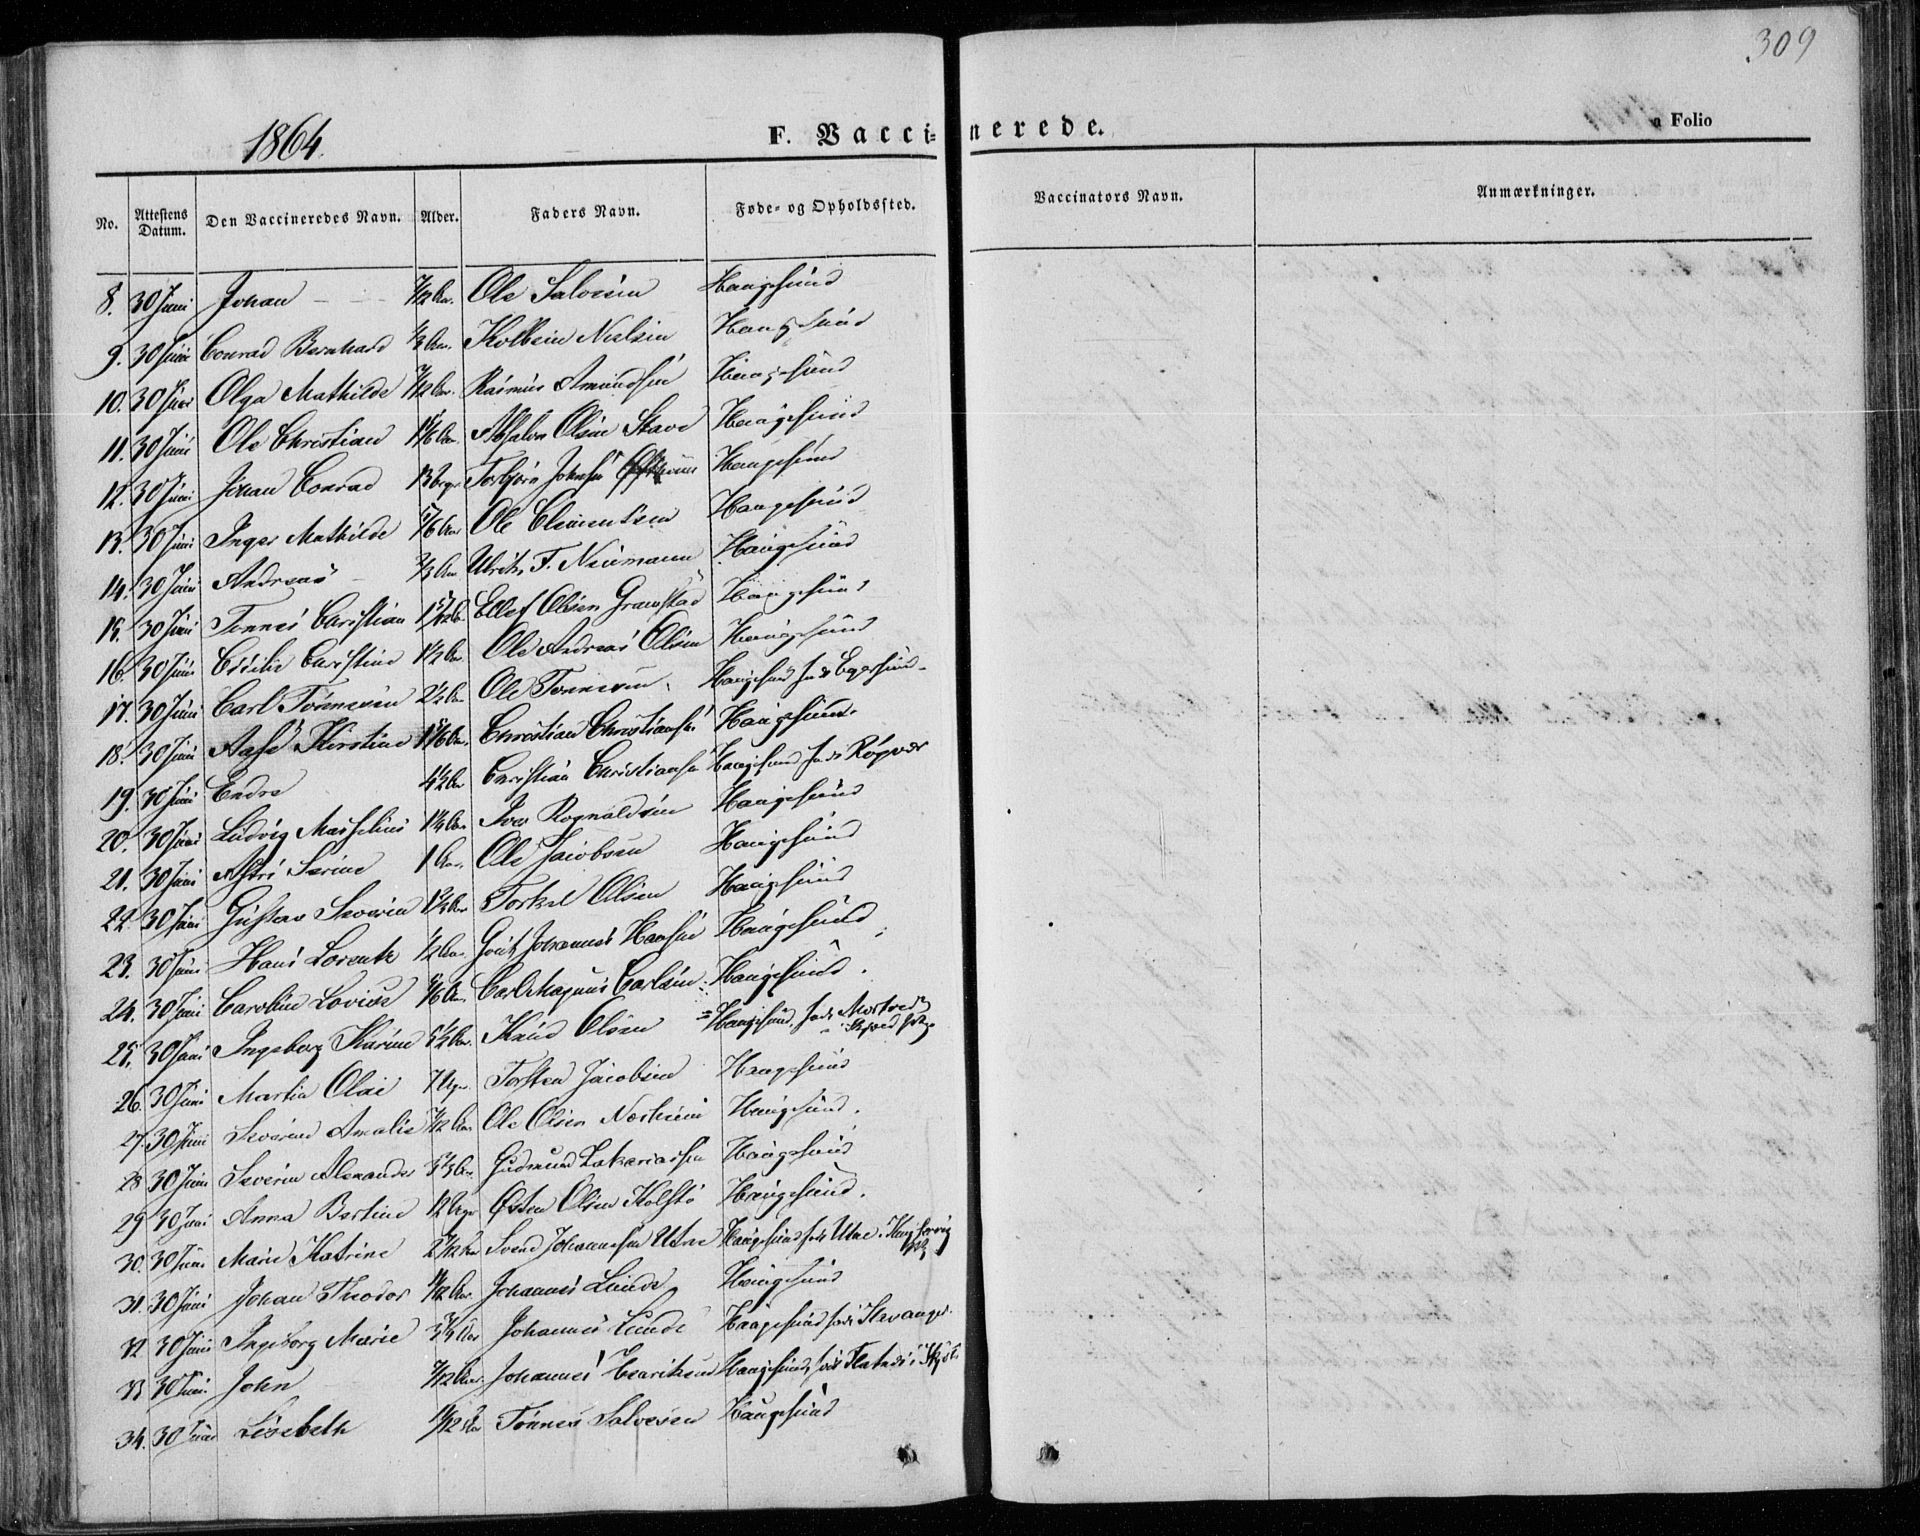 309
1864.
F. Vaccinerede.
Folio
No. Attestens Datum. Den Vaccineredes Navn. Alder. Faders Navn. Føde- og Opholdssted. Vaccinators Navn. Anmærkninger.
8. 30 Juni Johan 7/12 Aar. Ole Salvesen Haugesund
9. 30 Juni Conrad Bernhard Kolbein Nielsen Haugesund
10. 30 Juni Olga Mathilde 7/12 Aar. Rasmus Amundsen Haugesund
11. 30 Juni Ole Christian Absalon Olsen Stave Haugesund
12. 30 Juni Johan Conrad 13 Uger Torbjørn Johnsen Haugesund
13. 30 Juni Inger Mathilde Ole Clementsen Haugesund
14. 30 Juni Andreas 2/3 Aar Ulrik F. Neumann Haugesund
15. 30 Juni Tønnes Christian Ellef Olsen Gramstad Haugesund
16. 30 Juni Cecilie Christine 1 1/2 Aar Ole Andreas Olsen Haugesund
17. 30 Juni Carl Tønnesen 2 1/2 Aar Ole Tønnesen Haugesund født Egersund
18. 30 Juni Aase Kirstine Christian Christiansen Haugesund.
19. 30 Juni Endre 4 1/2 Aar Christian Christiansen Haugesund født Røgvær
20. 30 Juni Ludvig Masselius Iver Rognaldsen Haugesund
21. 30 Juni Astri Serine 1 Aar. Ole Jacobsen Haugesund
22. 30 Juni Gustav Severin Torkel Olsen Haugesund
23. 30 Juni Hans Lorentz 1/2 Aar. Johannes Hansen Haugesund
24. 30 Juni Caroline Lovise Carl Magnus Carlsen Haugesund.
25. 30 Juni Ingeborg Karine 5 1/2 Aar. Knud Olsen Haugesund,
26. 30 Juni Martin Olai 7 Uger Torsten Jacobsen Haugesund
27. 30 Juni Severine Amalie Ole Olsen Haugesund.
28 30 Juni Severin Alexander Gudmund Zakariassen Haugesund
29 30 Juni Anna Bertine 12 Uger Østen Olsen Kolstø Haugesund.
30. 30 Juni Marie Katrine Svend Johannesen Utne Haugesund født Utne i
31. 30 Juni Johan Theodor Johannes Lunde Haugesund
32 30 Juni Ingeborg Marie Johannes Lunde Haugesund født Stavanger.
33 30 Juni. John 7/12 Aar. Johannes Henriksen Haugesund,
34. 30 Juni Lisebeth Tønnes Salvesen Haugesund